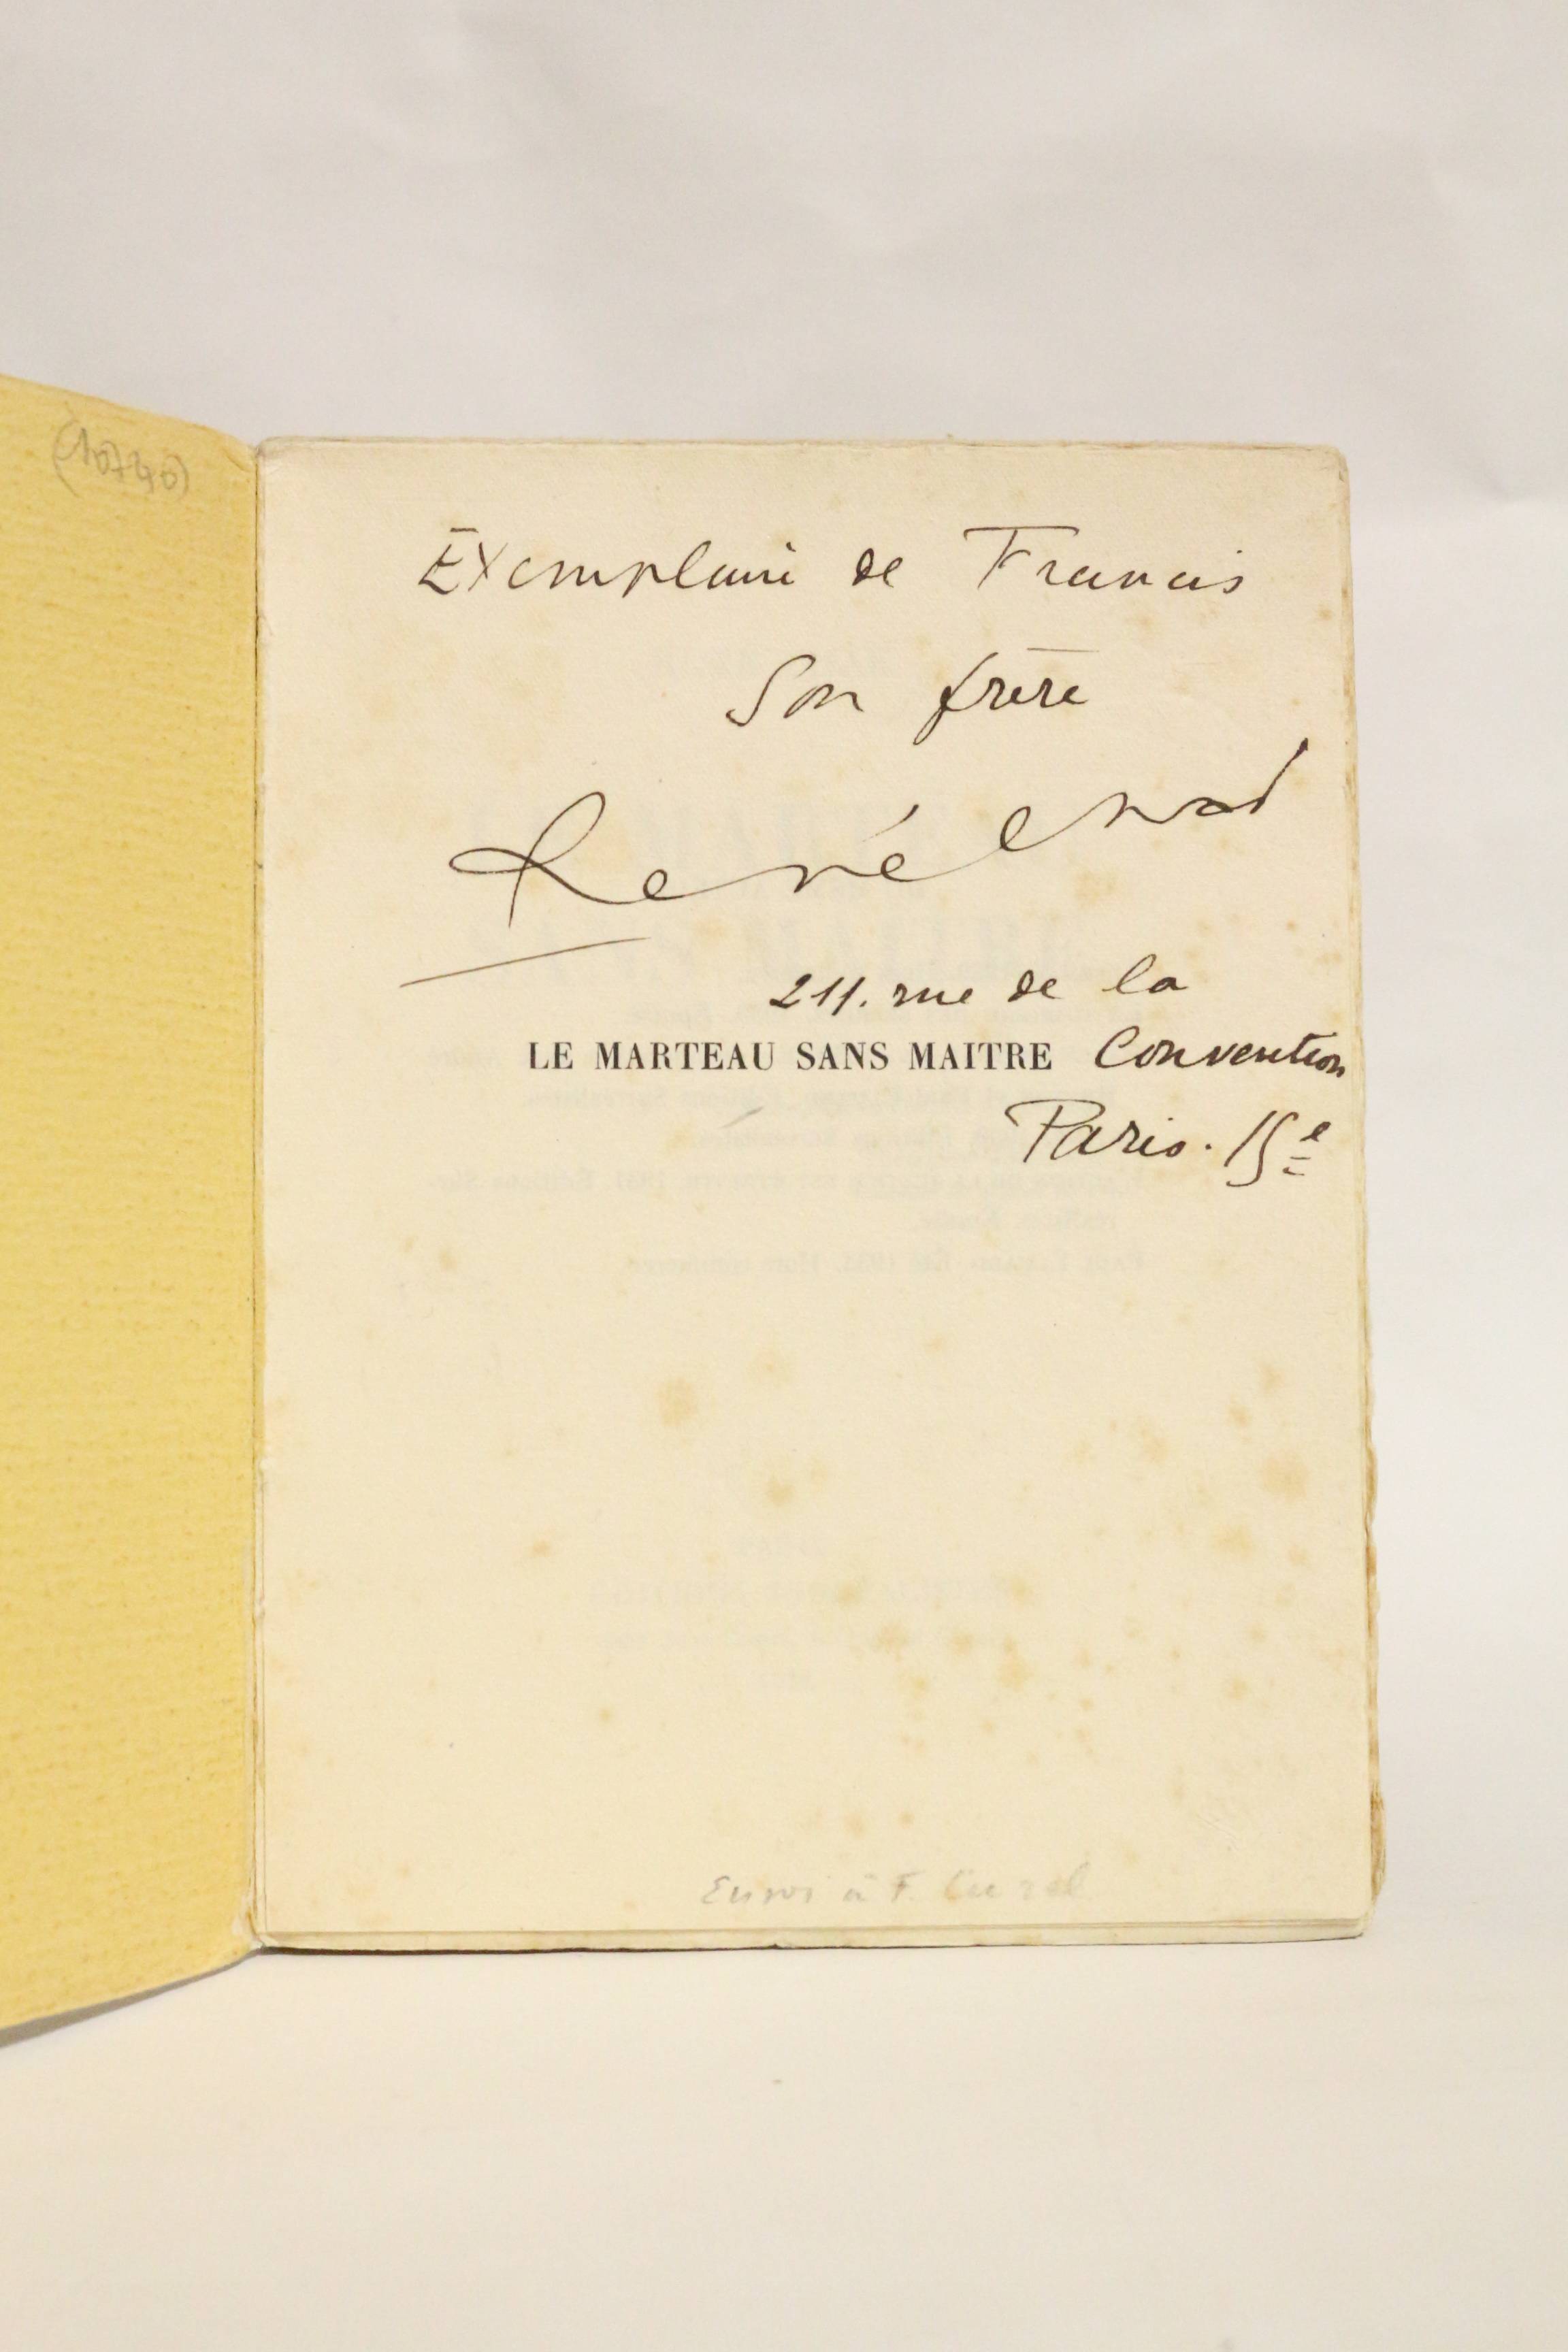 (10740)
Exemplaire de Francis
Son frère
René Char
211. rue de la
LE MARTEAU SANS MAITRE Convention
Paris. 15e
Envoi à F. Curel